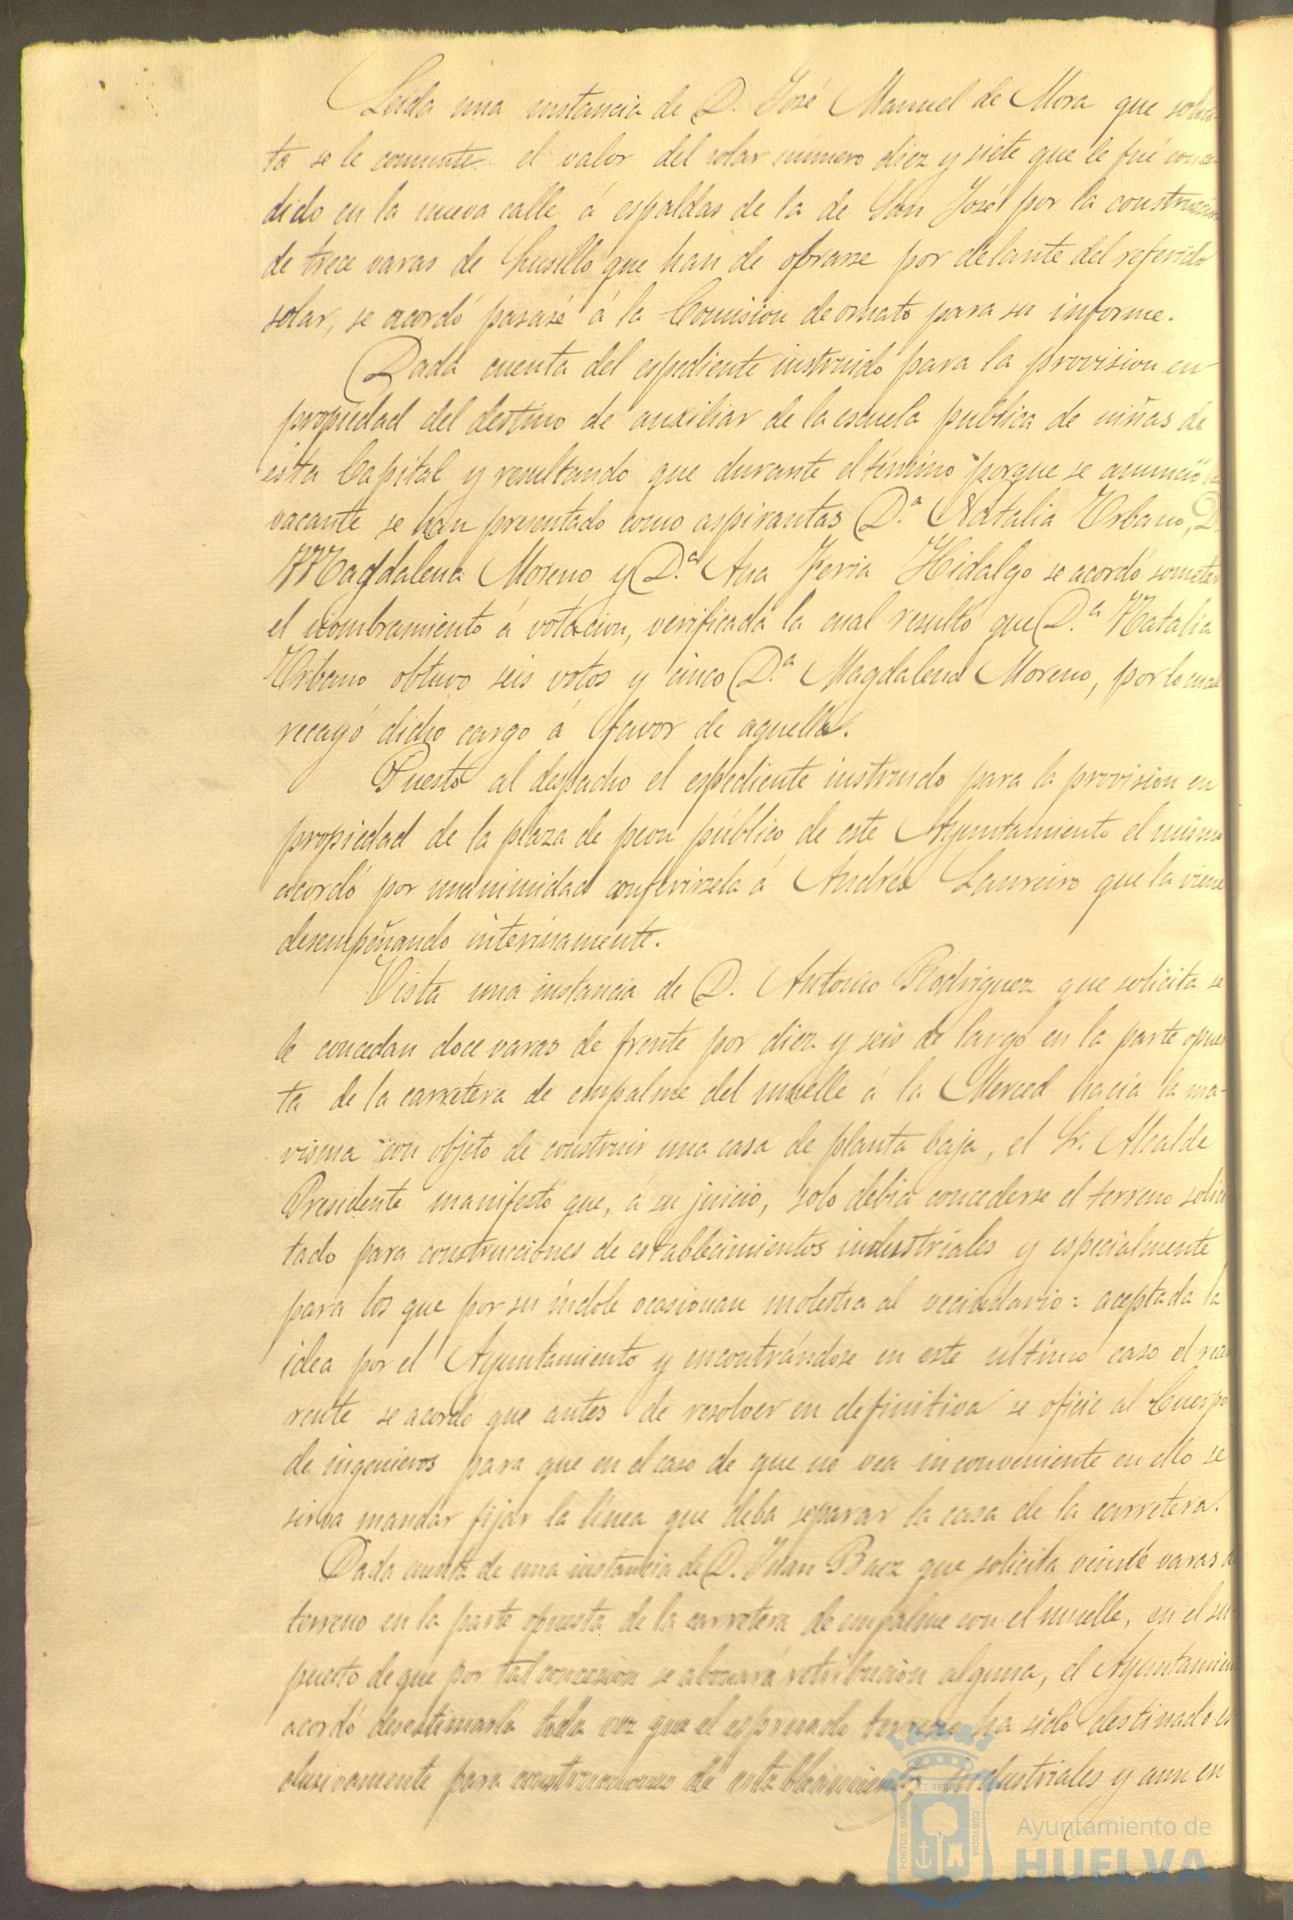 Leida una instancia de D. José Manuel de Mora que solici-
ta se le conmute el valor del solar número diez y siete que le fué conce-
dido en la nueva calle á espaldas de la de San José por la construccion
de trece varas de husillo que han de obrarse por delante del referido
solar, se acordó pasase á la Comision de ornato para su informe.
Dada cuenta del espediente instruido para la provision en
propiedad del destino de auxiliar de la escuela publica de niñas de
esta Capital y resultando que durante el término porque se anunció la
vacante se han presentado como aspirantas D.ª Natalia Urbano, D.
Magdalena Moreno y D.ª Ana Feria Hidalgo se acordó someter
el nombramiento á votacion, verificada la cual resultó que D.ª Natalia
Urbano obtuvo seis votos y cinco D.ª Magdalena Moreno, por lo cual
recayó dicho cargo á favor de aquella.
Puesto al despacho el espediente instruido para la provision en
propiedad de la plaza de peon público de este Ayuntamiento el mismo
acordó por unanimidad conferirsela á Andrés Laureiro que la viene
desempeñando interinamente.
Vista una instancia de D. Antonio Rodriguez que solicita se
le concedan doce varas de frente por diez y seis de largo en la parte opues
ta de la carretera de empalme del muelle á la Merced hacia la ma-
risma con objeto de construir una casa de planta baja, el Sr. Alcalde
Presidente manifestó que, á su juicio, solo debia concederse el terreno solici
tado para construcciones de establecimientos industriales y especialmente
para los que por su índole ocasionan molestia al vecindario = aceptada la
idea por el Ayuntamiento y encontrándose en este último caso el recu
rrente se acordó que antes de resolver en definitiva se oficie al Cuerpo
de ingenieros para que en el caso de que no vea inconveniente en ello se
sirva mandar fijar la línea que deba separar la casa de la carretera.
Dada cuenta de una instancia de D. Juan Baez que solicita veinte varas de
terreno en la parte opuesta de la carretera de empalme con el muelle, en el su-
puesto de que por tal concesion se abonará retribucion alguna, el Ayuntamien
acordó desestimarla toda vez que el espresado terreno ha sido destinado es
clusivamente para construcciones de establecimientos industriales y aun en
Ayuntamiento de
HUELVA
PORTUS MARIS
ET TERRÆ
CUSTODIA